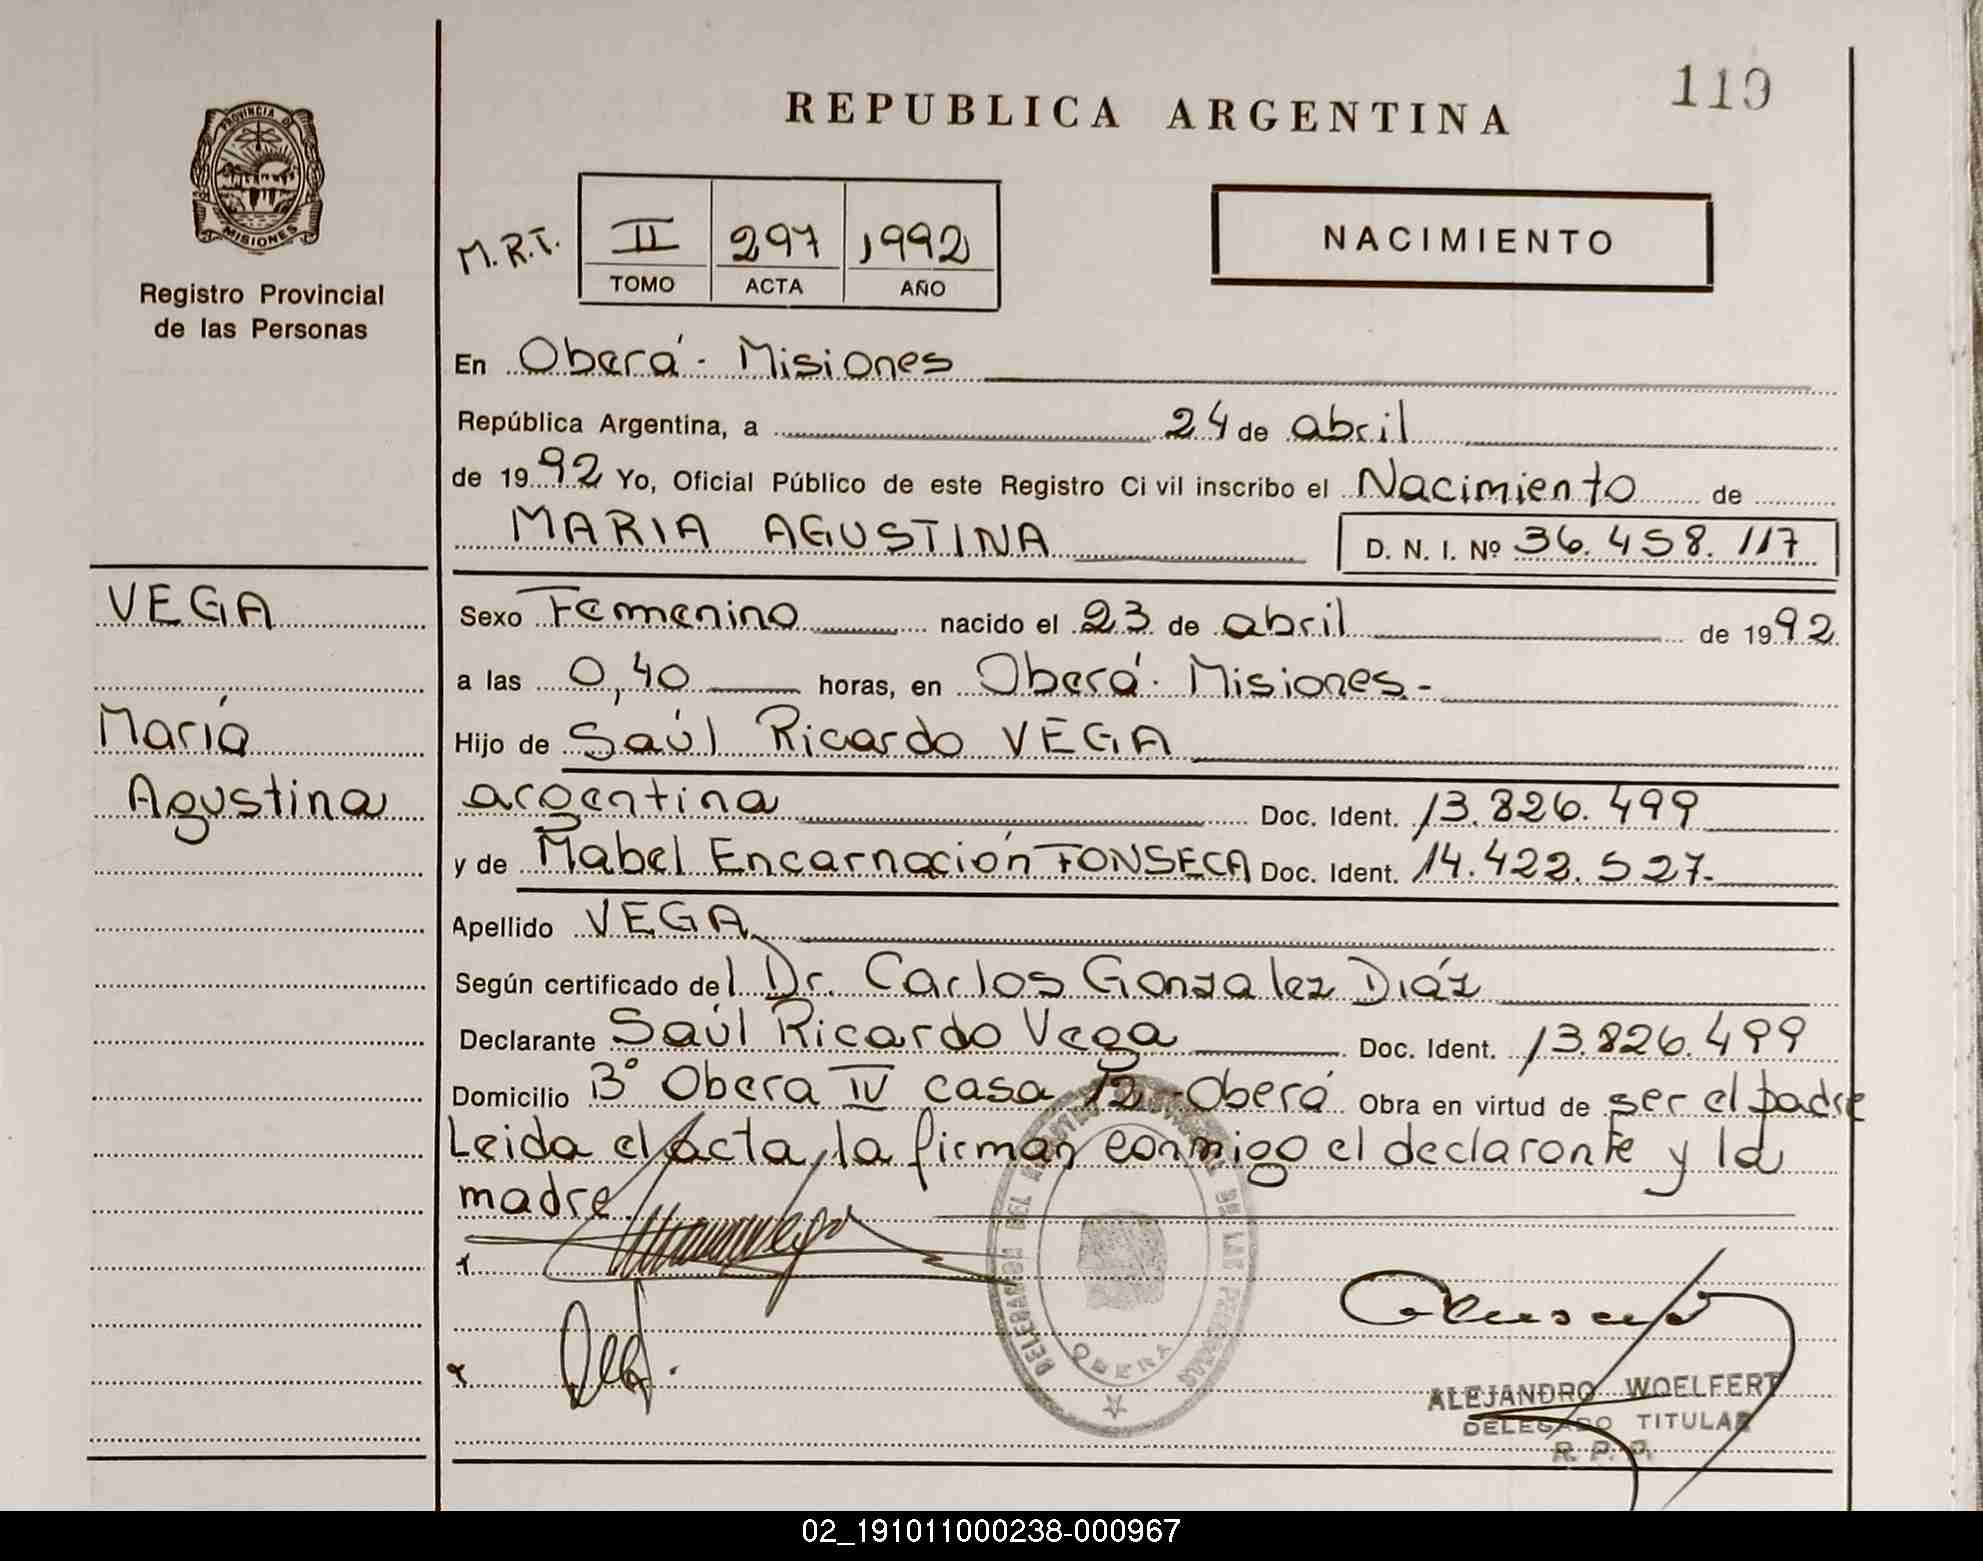 119
REPUBLICA ARGENTINA
PROVINCIA D
MISIONES
Registro Provincial
de las Personas
M.R.T. II 297 1992
TOMO ACTA AÑO
NACIMIENTO
En Oberá - Misiones
República Argentina, a 24 de abril
de 1992 Yo, Oficial Público de este Registro Civil inscribo el Nacimiento de
MARIA AGUSTINA D. N. I. Nº 36.458.117
VEGA
María
Agustina
Sexo Femenino nacido el 23 de abril de 1992
a las 0,40 horas, en Oberá - Misiones.-
Hijo de Saúl Ricardo VEGA
argentina Doc. Ident. 13.826.499
y de Mabel Encarnación FONSECA Doc. Ident. 14.422.527.-
Apellido VEGA
Según certificado del Dr. Carlos Gonzalez Diáz
Declarante Saúl Ricardo Vega Doc. Ident. 13.826.499
Domicilio B° Obera IV casa 12 - Oberá Obra en virtud de ser el padre
Leida el acta, la firman conmigo el declarante y la
madre
OBERA
ALEJANDRO WOELFERT
DELEGADO TITULAR
R. P. P.
02_191011000238-000967